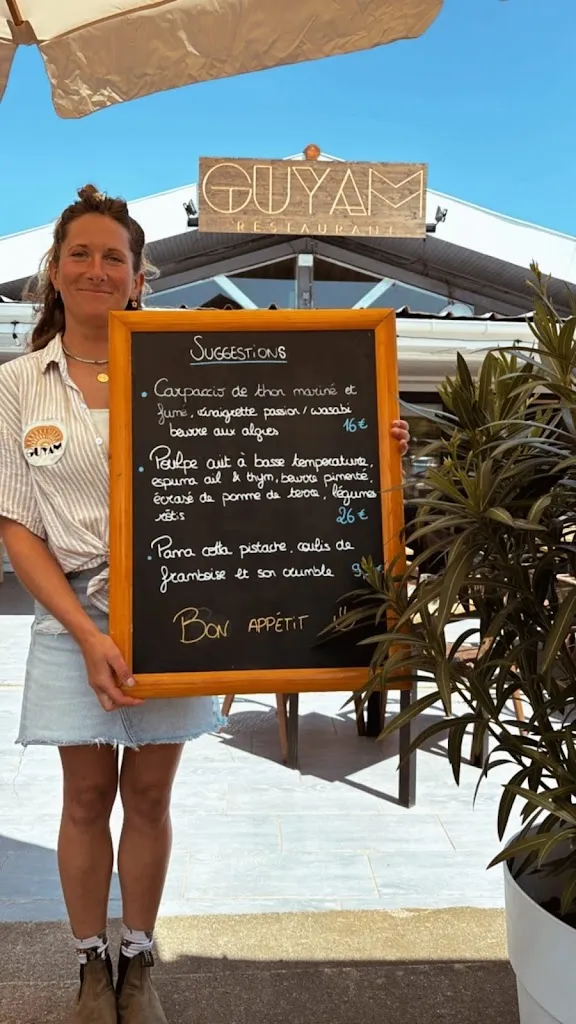 GUYAM
RESTAURANT
SUGGESTIONS
Carpaccio de thon mariné et
fumé, vinaigrette passion/wasabi
beurre aux algues
16€
Poulpe cuit à basse température,
espuma ail & thym, beurre pimenté,
écrasé de pomme de terre, légumes
rôtis
26€
Panna cotta pistache, coulis de
framboise et son crumble
BON APPÉTIT !!
GUYAM